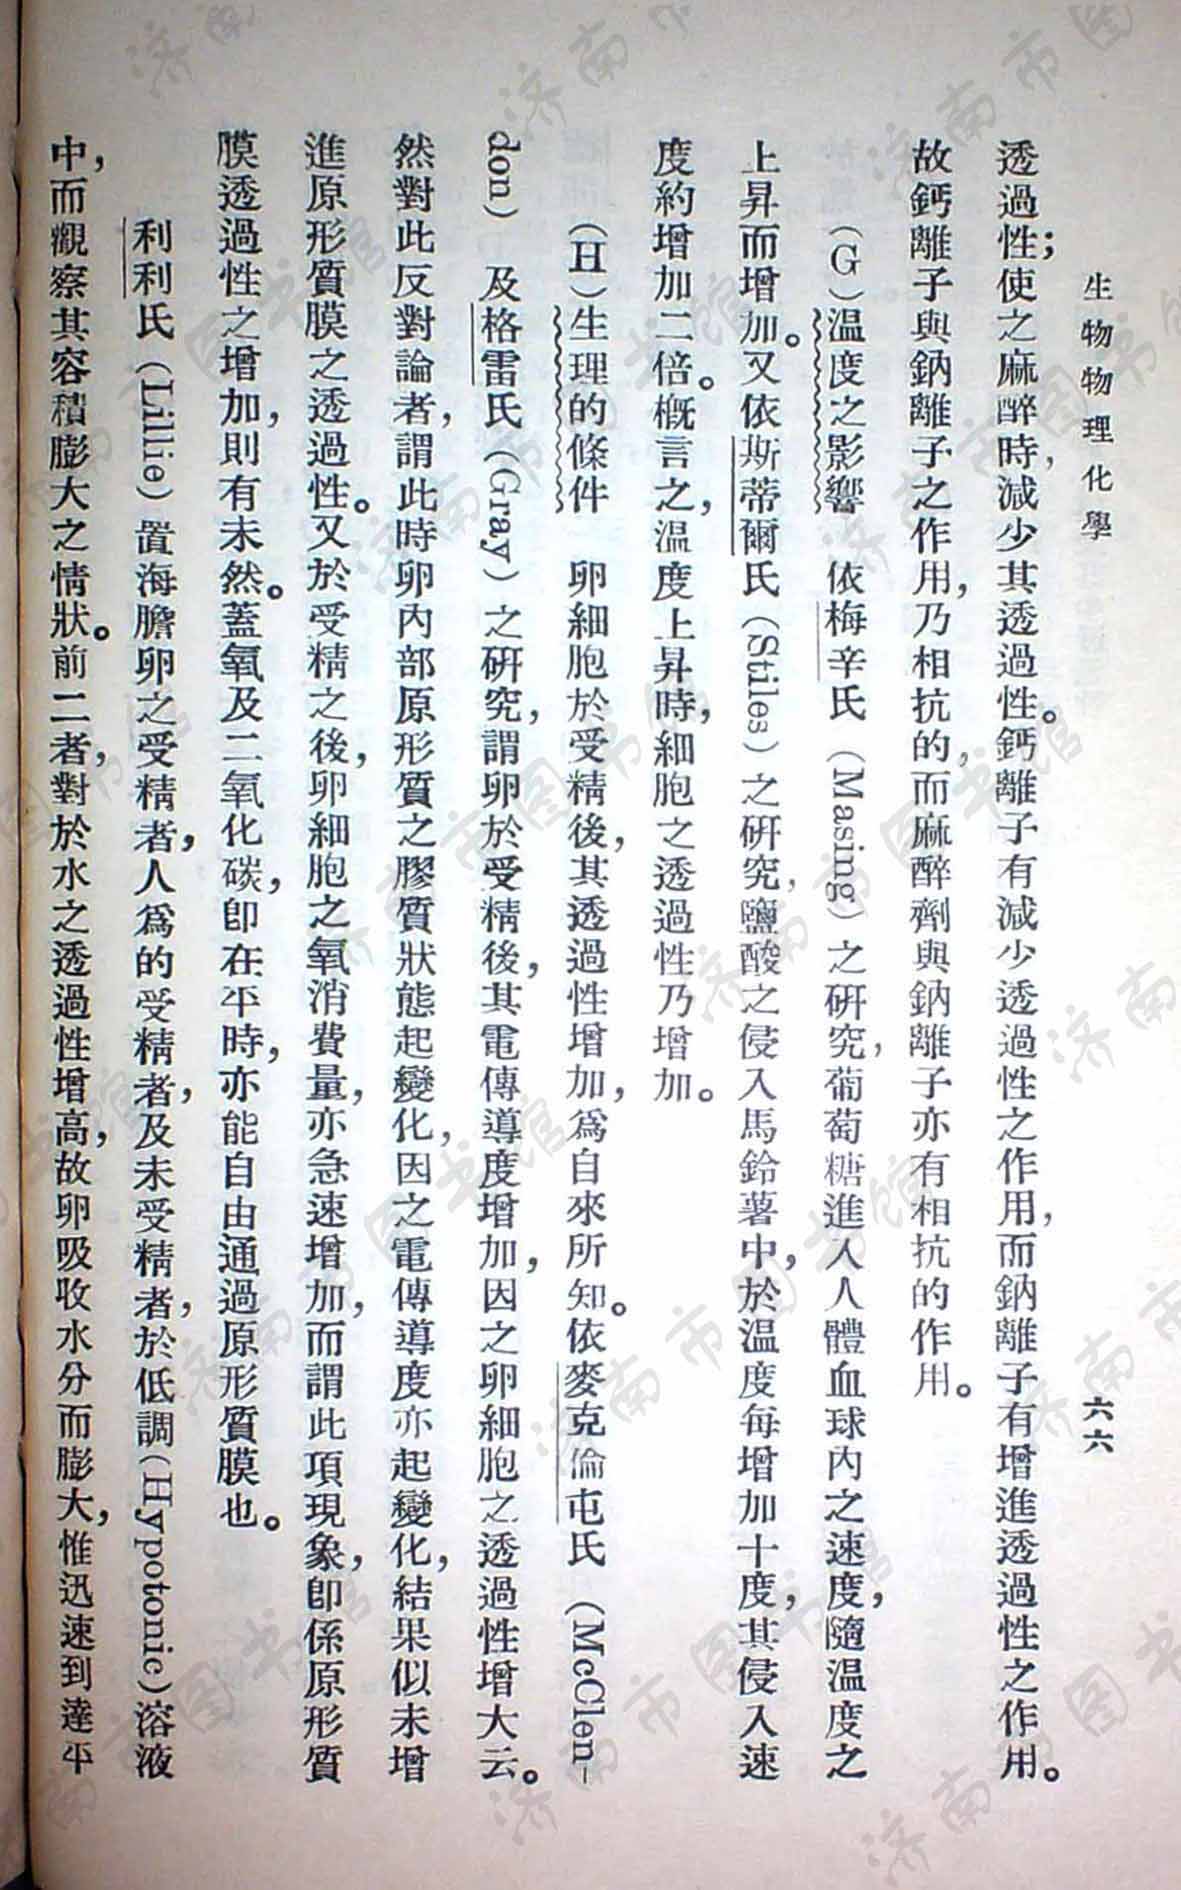 生物物理化學
六六
透過性；使之麻醉時，減少其透過性。鈣離子有減少透過性之作用，而鈉離子有增進透過性之作用。
故鈣離子與鈉離子之作用，乃相抗的，而麻醉劑與鈉離子亦有相抗的作用。
（G）溫度之影響　依梅辛氏（Masing）之研究，葡萄糖進入人體血球內之速度，隨溫度之
上昇而增加。又依斯蒂爾氏（Stiles）之研究，鹽酸之侵入馬鈴薯中，於溫度每增加十度，其侵入速
度約增加二倍。概言之，溫度上昇時，細胞之透過性乃增加。
（H）生理的條件　卵細胞於受精後，其透過性增加，爲自來所知。依麥克倫屯氏（McClen-
don）及格雷氏（Gray）之研究，謂卵於受精後，其電傳導度增加，因之卵細胞之透過性增大云。
然對此反對論者，謂此時卵內部原形質之膠質狀態起變化，因之電傳導度亦起變化，結果似未增
進原形質膜之透過性。又於受精之後，卵細胞之氧消費量，亦急速增加，而謂此項現象，卽係原形質
膜透過性之增加，則有未然。蓋氧及二氧化碳，卽在平時，亦能自由通過原形質膜也。
利利氏（Lillie）置海膽卵之受精者，人爲的受精者，及未受精者，於低調（Hypotonic）溶液
中，而觀察其容積膨大之情狀。前二者，對於水之透過性增高，故卵吸收水分而膨大，惟迅速到達平
济南市图书馆